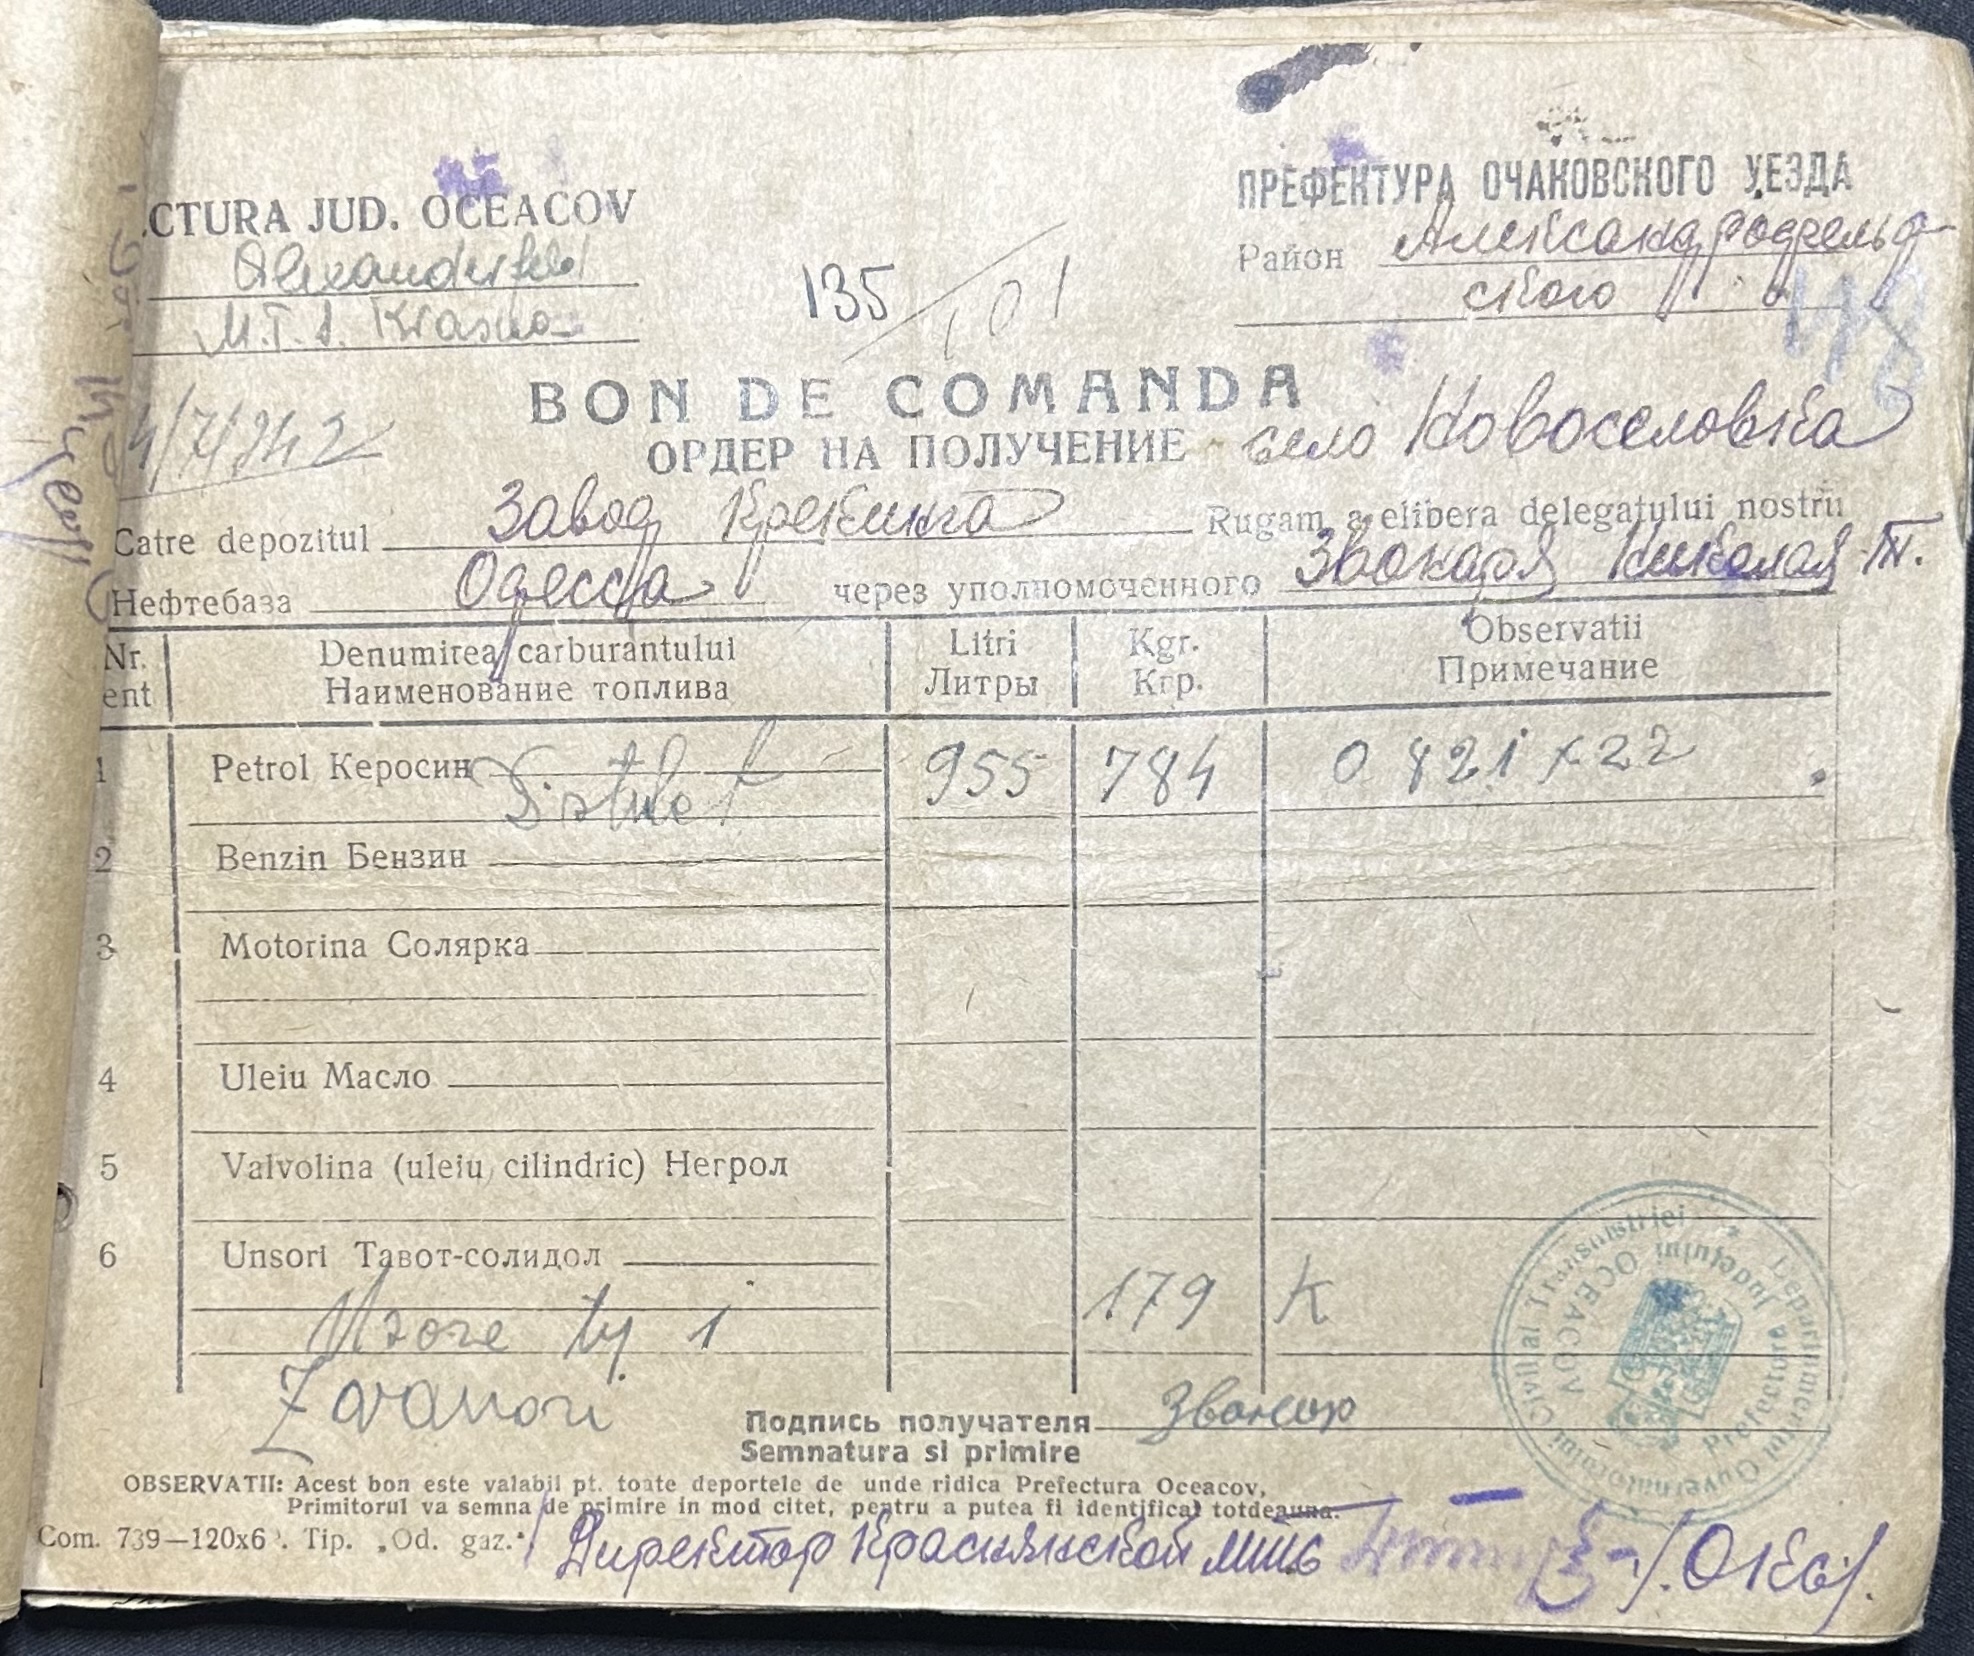 CTURA JUD. OCEACOV
Alexanderfeld
M.T.S. Krasna
135/101
ПРЕФЕКТУРА ОЧАКОВСКОГО УЕЗДА
Район Александродрельф
ского
48
4/7/942
BON DE COMANDA
ОРДЕР НА ПОЛУЧЕНИЕ село Новоселовка
Catre depozitul Завод Крекинга Rugam a elibera delegatului nostru
Нефтебаза Одесса через уполномоченного Звонаря Николая Т.
Nr. Denumirea carburantului Litri Kgr. Observatii
ent Наименование топлива Литры Кгр. Примечание
1 Petrol Керосин Distilat 955 784 0 821 x 22
2 Benzin Бензин
3 Motorina Солярка
4 Uleiu Масло
5 Valvolina (uleiu cilindric) Негрол
6 Unsori Тавот-солидол
179 K
Подпись получателя Звонар
Semnatura si primire
OBSERVATII: Acest bon este valabil pt. toate deportele de unde ridica Prefectura Oceacov,
Primitorul va semna de primire in mod citet, pentru a putea fi identificat totdeauna.
Com. 739—120x6 . Tip. „Od. gaz."
Директор Краснянской мтс
Guvernatorului Civil al Transnistriei * Departamentul
Prefectura Judetului OCEACOV